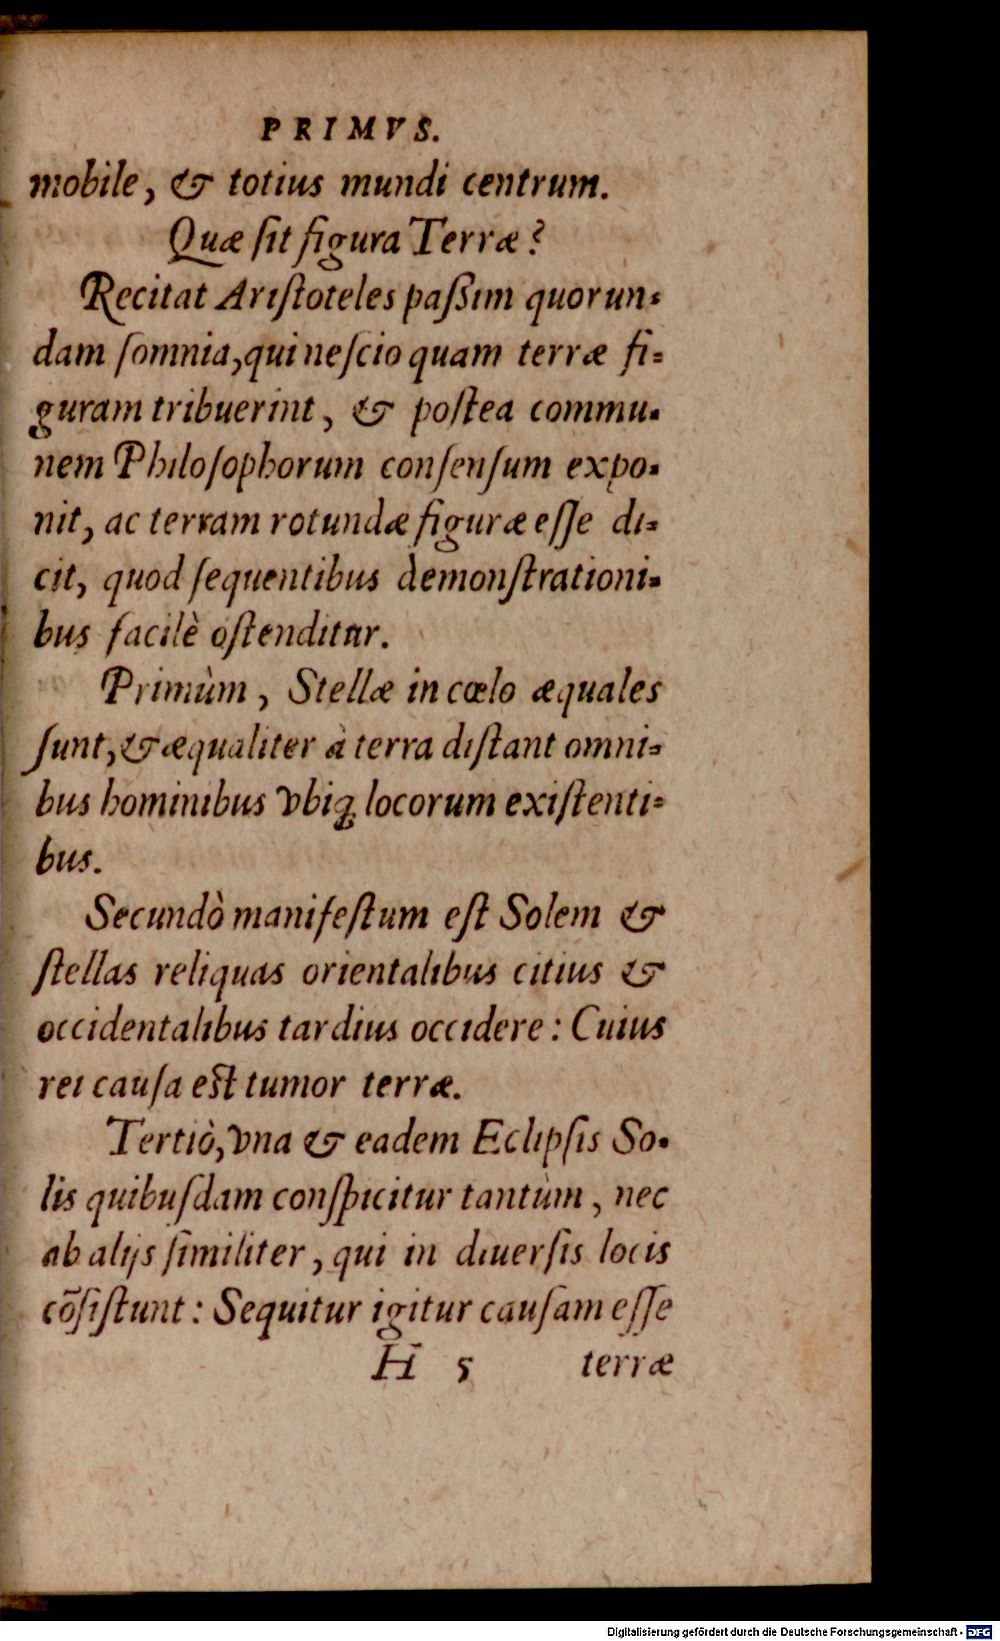 PRIMVS.
mobile, & totius mundi centrum.
Quæ ſit figura Terræ?
Recitat Ariſtoteles paßim quorun-
dam ſomnia, qui neſcio quam terræ fi-
guram tribuerint, & poſtea commu-
nem Philoſophorum conſenſum expo-
nit, ac terram rotundæ figuræ eſſe di-
cit, quod ſequentibus demonſtrationi-
bus facilè oſtenditur.
Primùm, Stellæ in cœlo æquales
ſunt, & æqualiter à terra diſtant omni-
bus hominibus vbiq; locorum exiſtenti-
bus.
Secundò manifeſtum eſt Solem &
ſtellas reliquas orientalibus citius &
occidentalibus tardius occidere: Cuius
rei cauſa eſt tumor terræ.
Tertiò, vna & eadem Eclipſis So-
lis quibuſdam conſpicitur tantùm, nec
ab alijs ſimiliter, qui in diuerſis locis
cõſiſtunt: Sequitur igitur cauſam eſſe
H 5 terræ
Digitalisierung gefördert durch die Deutsche Forschungsgemeinschaft - DFG